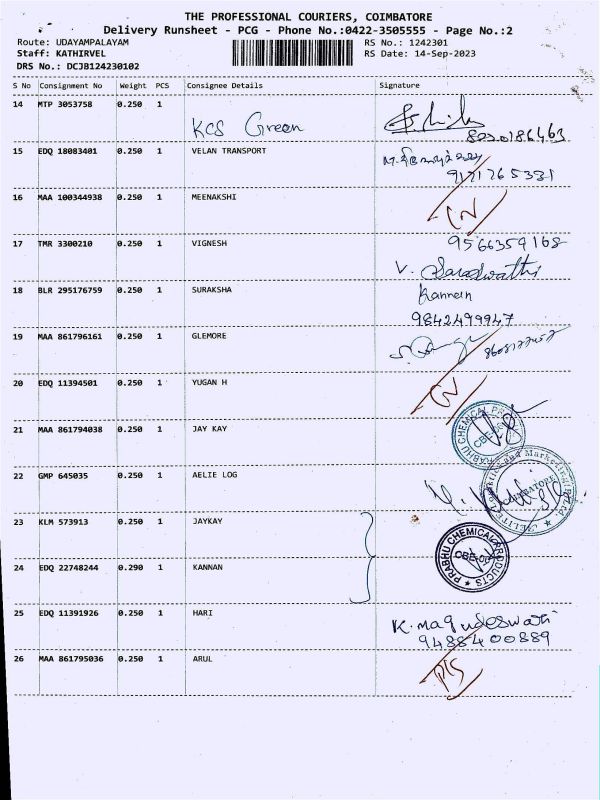 THE PROFESSIONAL COURIERS, COIMBATORE
Delivery Runsheet - PCG - Phone No.:0422-3505555 - Page No.:2
Route: UDAYAMPALAYAM RS No.: 1242301
Staff: KATHIRVEL RS Date: 14-Sep-2023
DRS No.: DCJB124230102
S No Consignment No Weight PCS Consignee Details Signature
14 MTP 3053758 0.250 1
KCS Green
8220186463
15 EDQ 18083401 0.250 1 VELAN TRANSPORT
9171765331
16 MAA 100344938 0.250 1 MEENAKSHI
17 TMR 3300210 0.250 1 VIGNESH 9566359168
V. Saraswathi
18 BLR 295176759 0.250 1 SURAKSHA
9842499947
19 MAA 861796161 0.250 1 GLEMORE
20 EDQ 11394501 0.250 1 YUGAN H
21 MAA 861794038 0.250 1 JAY KAY
PRABHU CHEMICAL
22 GMP 645035 0.250 1 AELIE LOG
23 KLM 573913 0.250 1 JAYKAY
PRABHU CHEMICAL PRODUCTS
24 EDQ 22748244 0.290 1 KANNAN
25 EDQ 11391926 0.250 1 HARI
K. Magudeswari
9488400889
26 MAA 861795036 0.250 1 ARUL